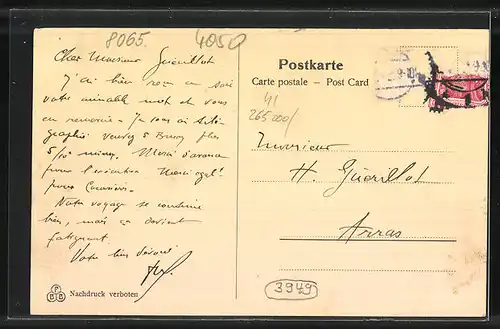 8065.
4050
Cher Monsieur Guérillot
J'ai bien reçu ce soir
votre aimable mot et vous
en remercie - Je vous ai
5 Bussy
5/10
Merci d'avance
pour Merci égal.t
pour
Notre voyage se continue
bien, mais ça devient
fatiguant.
Votre bien dévoué
PBB
Nachdruck verboten
Postkarte
Carte postale – Post Card
41
265200/
Monsieur
H. Guérillot
Arras
3949